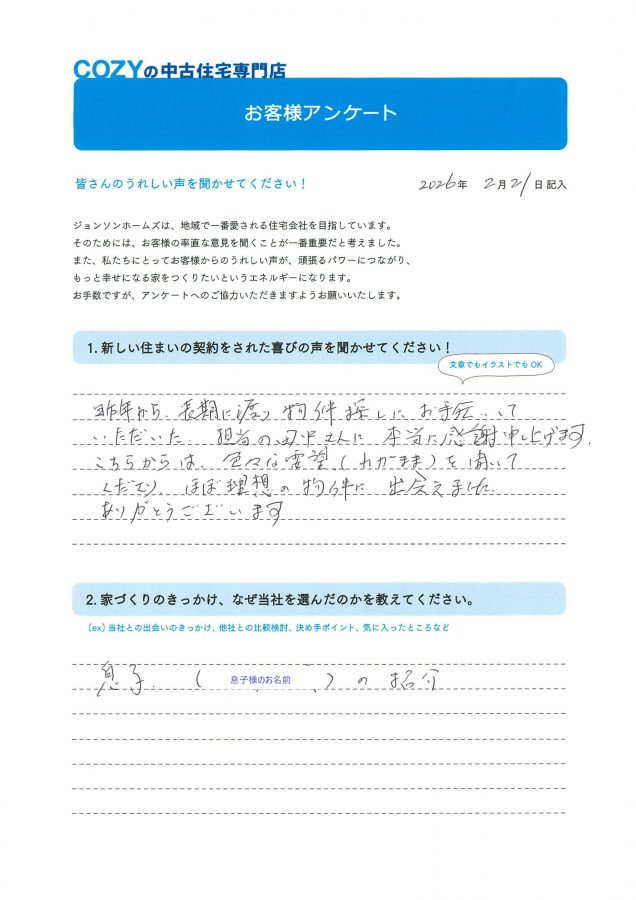 COZYの中古住宅専門店
お客様アンケート
皆さんのうれしい声を聞かせてください！
2026年 2月21日記入
ジョンソンホームズは、地域で一番愛される住宅会社を目指しています。
そのためには、お客様の率直な意見を聞くことが一番重要だと考えました。
また、私たちにとってお客様からのうれしい声が、頑張るパワーにつながり、
もっと幸せになる家をつくりたいというエネルギーになります。
お手数ですが、アンケートへのご協力いただきますようお願いいたします。
1. 新しい住まいの契約をされた喜びの声を聞かせてください！
文章でもイラストでもOK
昨年から、長期に渡り 物件探しに お手伝いして
いただいた 担当の田中さんに 本当に感謝申し上げます。
こちらからは、色々な要望、(わがまま)を聞いて
くださり、ほぼ理想の物件に 出会えました
ありがとうございます
2. 家づくりのきっかけ、なぜ当社を選んだのかを教えてください。
(ex) 当社との出会いのきっかけ、他社との比較検討、決め手ポイント、気に入ったところなど
息子 ( 息子様のお名前 ) の 紹介